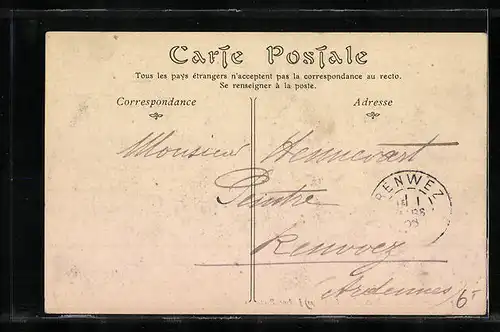 Carte Postale
Tous les pays étrangers n'acceptent pas la correspondance au recto.
Se renseigner à la poste.
Correspondance
Adresse
Monsieur Hennevart
Peintre
Renwez
Ardennes
RENWEZ
08
6